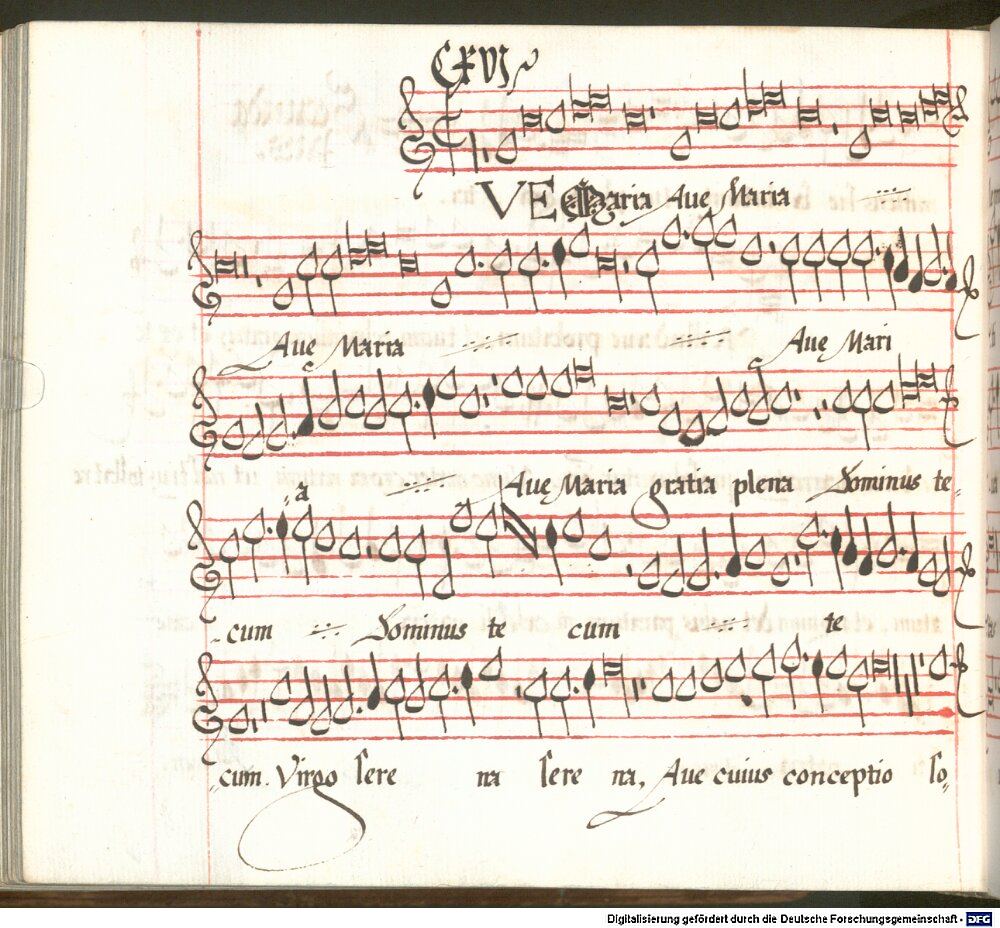 CXVI
VE Maria Aue Maria
Aue Maria Aue Mari
a Aue Maria gratia plena Dominus te
cum Dominus te cum te
cum. Virgo sere na sere na, Aue cuius conceptio so
Digitalisierung gefördert durch die Deutsche Forschungsgemeinschaft - DFG